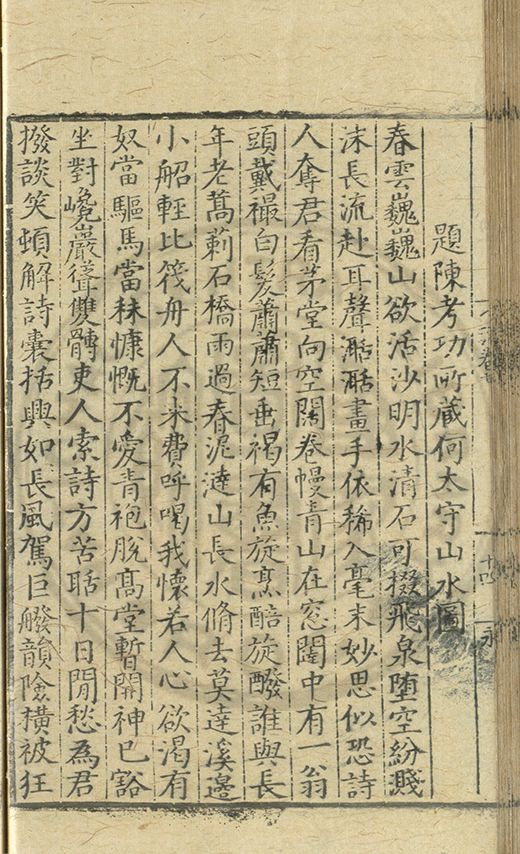 題陳考功所藏何太守山水圖
春雲巍巍山欲活沙明水清石可掇飛泉墮空紛濺
沫長流赴耳聲湉湉畫手依稀入毫末妙思似恐詩
人奪君看茅堂向空闊卷幔青山在窓闥中有一翁
頭戴襊白髮蕭蕭短垂褐有魚旋烹醅旋醱誰與長
年老蒿萴石橋雨過春泥澾山長水脩去莫達溪邊
小船輕比筏舟人不米費呼喝我懷若人心欲渴有
奴當驅馬當秣慷慨不愛青袍脫高堂暫開神已豁
坐對巉巖聳雙髆吏人索詩方苦聒十日閒愁為君
撥談笑頓解詩囊括興如長風駕巨艬韻險横被狂
十四